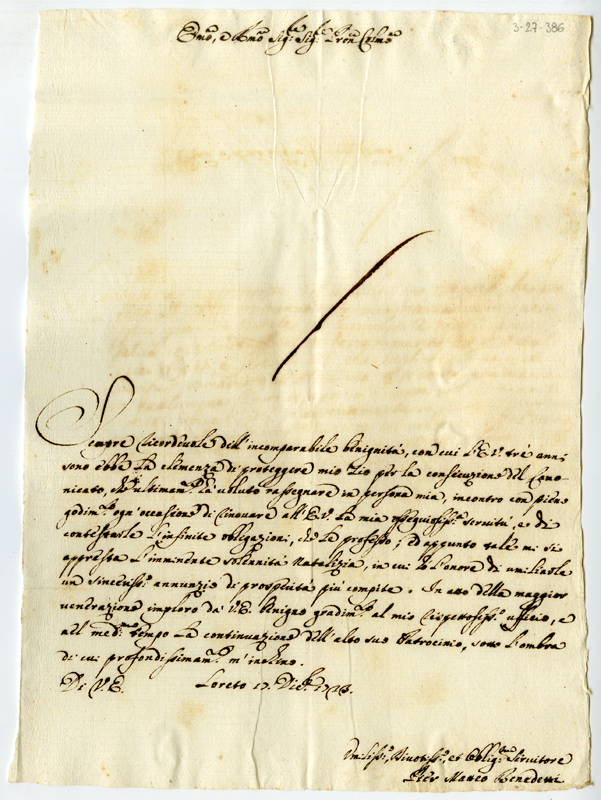 3-27-386
Emo, e Rmo Sigr Sigr Pron Colmo
Sempre ricordevole dell'incomparabile benignità, con cui l'E.V. trè anni
sono ebbe la clemenza di proteggere mio Zio per la consecuzione del Cano-
nicato, che ultimamte hà voluto rassegnare in persona mia, incontro con pieno
godimto ogn'occasione di rinovare all'E.V. la mia ossequiosissa servitù, e di
contestarle l'infinite obligazioni, che le professo; ed appunto tale mi si
appresta l'imminente solennità Natalizia, in cui hò l'onore di umiliarle
un sincerisso annunzio di prosperità più compite. In atto della maggior
venerazione imploro da V.E. benigno gradimto al mio rispettosisso ufficio, e
all medmo tempo la continuazione dell'alto suo Patrocinio, sotto l'ombra
di cui profondissimamte m'inchino.
Di V.E. Loreto Dicbre
Umiliss, Divotiss, et Obligmo Servitore
Pier Matteo Benedetti